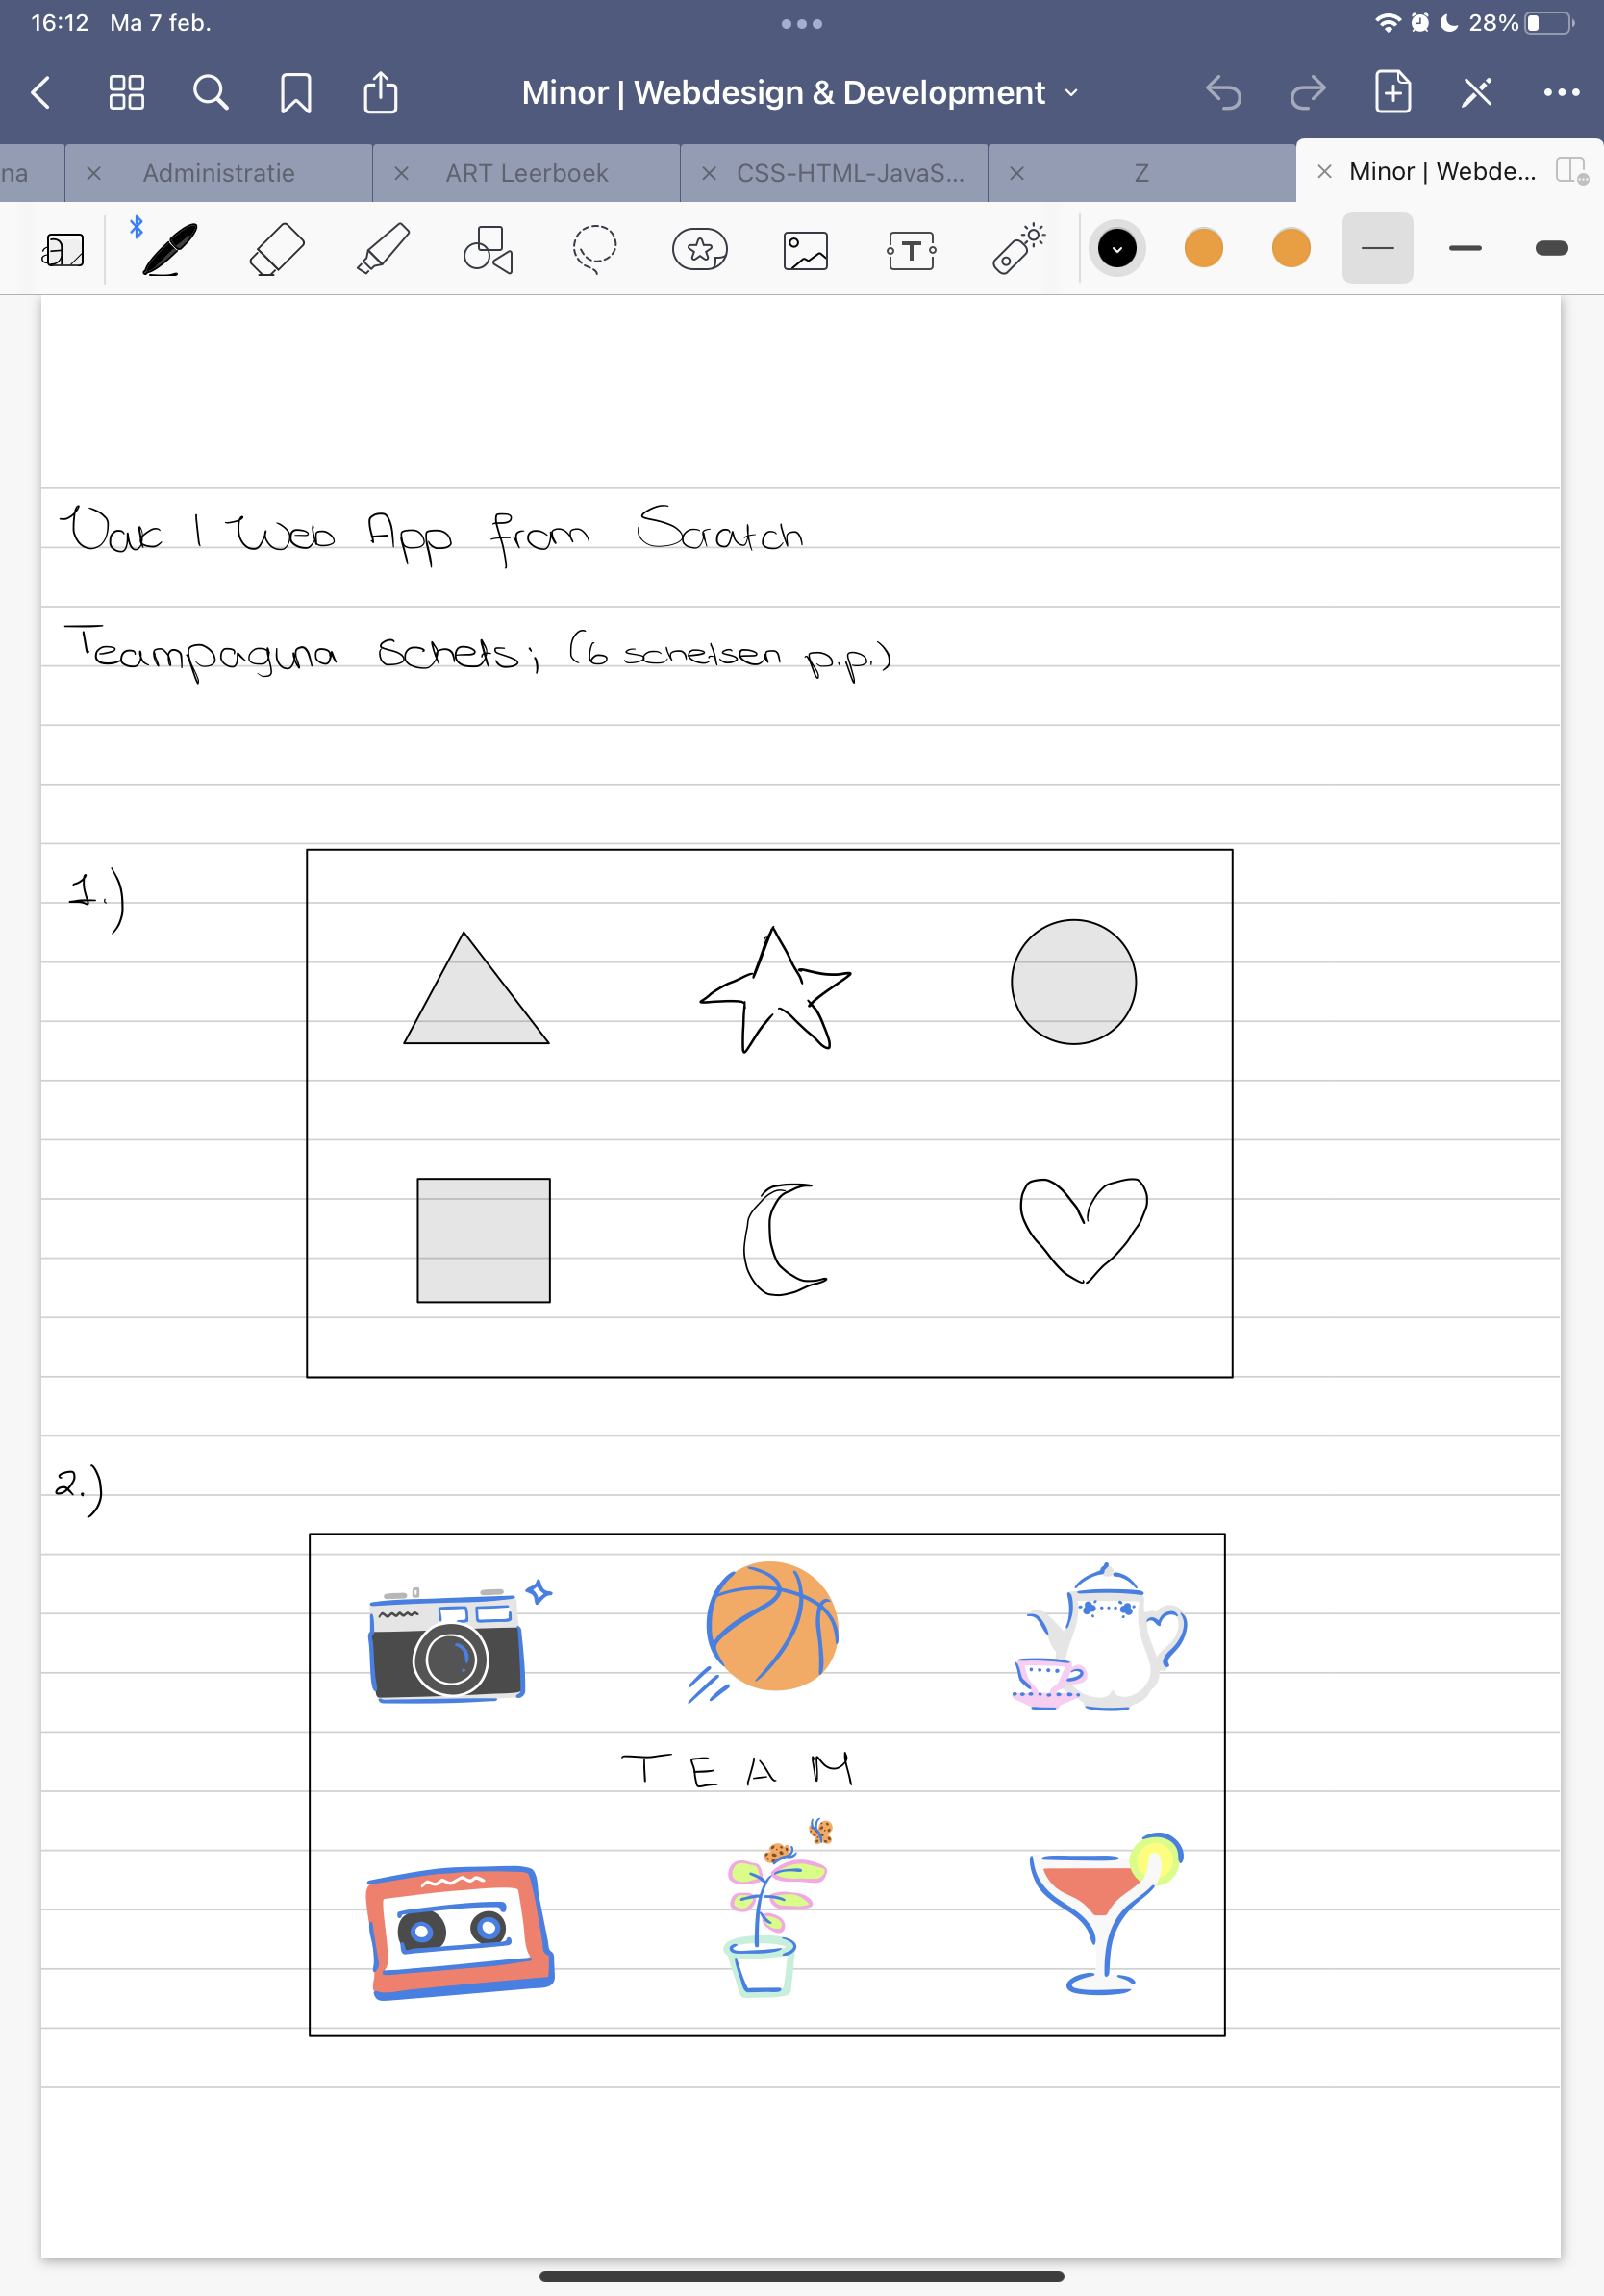 16:12 Ma 7 feb. 28%
Minor | Webdesign & Development
na Administratie ART Leerboek CSS-HTML-JavaS... Z Minor | Webde...
Vak 1 Web App from Scratch
Teampagina Schets; (6 schetsen p.p.)
1.)
2.)
TEAM